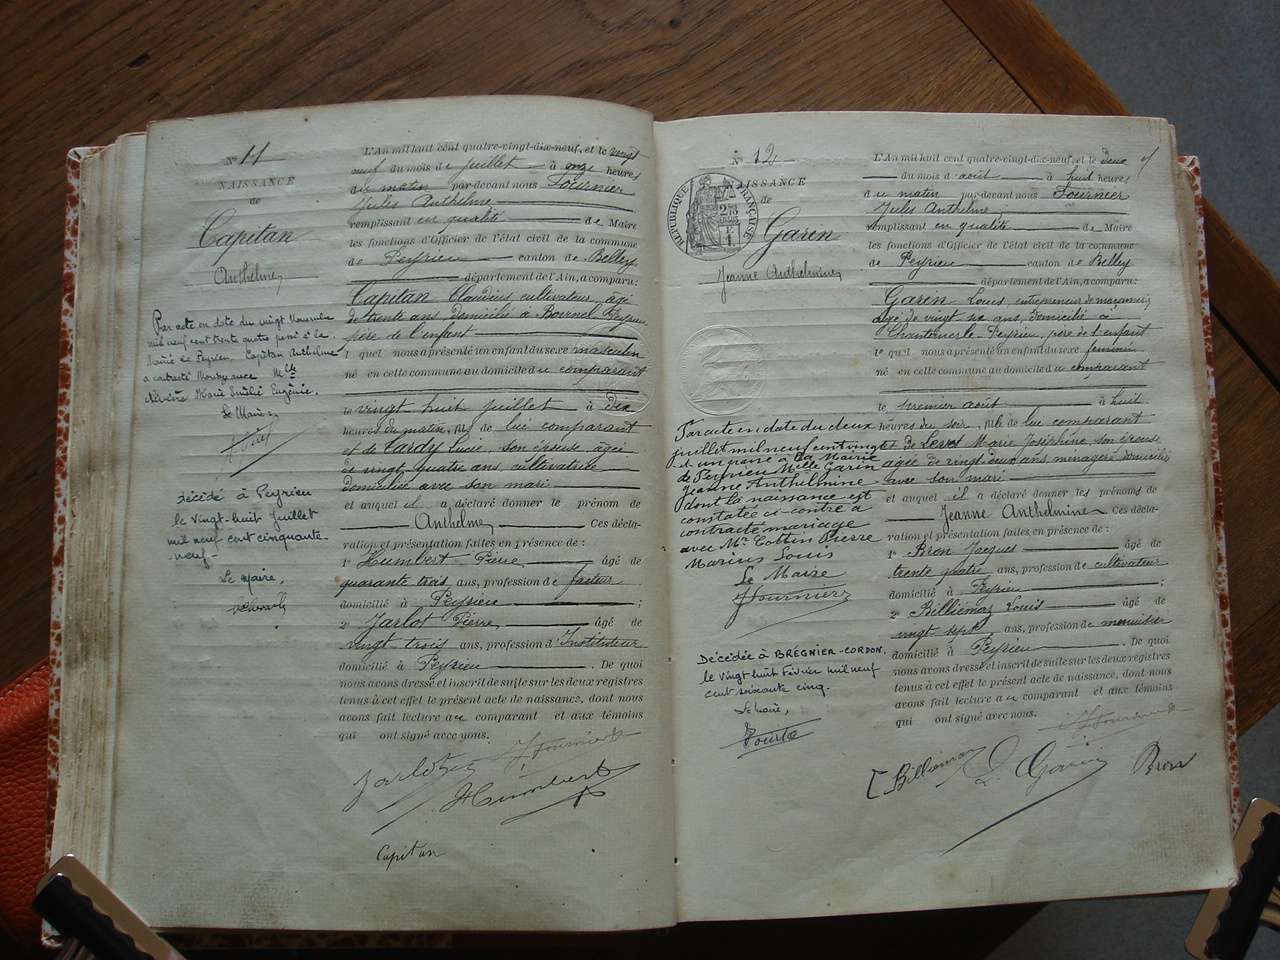 N° 11
NAISSANCE
de
Capitan
Anthelme
Par acte en date du vingt Novembre
mil neuf cent trente quatre passé à la
Mairie de Peyrieu Capitan Anthelme
a contracté mariage avec Mlle
Marie Emilie Eugénie.
Le Maire
Décédé à Peyrieu
le vingt-huit Juillet
mil neuf cent cinquante-
neuf-
Le Maire,
L'An mil huit cent quatre-vingt-dix-neuf, et le vingt
neuf du mois de juillet à onze heures
du matin par-devant nous Fournier
Jules Anthelme
remplissant en qualité de Maire
les fonctions d'Officier de l'état civil de la commune
de Peyrieu canton de Belley
département de l'Ain, a comparu:
Capitan Claudius cultivateur âgé
de trente ans domicilié à Peyrieu
père de l'enfant
lequel nous a présenté un enfant du sexe masculin
né en cette commune au domicile du comparant
le vingt huit juillet à dix
heures du matin, fils de lui comparant
et de Cardy Lucie son épouse âgée
de vingt quatre ans cultivatrice
domiciliée avec son mari
et auquel il a déclaré donner le prénom de
Anthelme Ces décla-
ration et présentation faites en présence de:
1° Humbert Pierre âgé de
quarante trois ans, profession de facteur
domicilié à Peyrieu ;
2° Jarlot Pierre âgé de
vingt trois ans, profession d'Instituteur
domicilié à Peyrieu . De quoi
nous avons dressé et inscrit de suite sur les deux registres
tenus à cet effet le présent acte de naissance, dont nous
avons fait lecture au comparant et aux témoins
qui ont signé avec nous.
Jarlot JFournier
Humbert
Capitan
N° 12
NAISSANCE
de
Garin
Jeanne Anthelmine
RÉPUBLIQUE FRANÇAISE
Par acte en date du deux
juillet mil neuf cent vingt
et un passé à la Mairie
de Peyrieu Melle Garin
Jeanne Anthelmine
dont la naissance est
constatée ci-contre a
contracté mariage
avec Mr Cottin Pierre
Marius Louis
Le Maire
JFournier
Décédée à BRÉGNIER-CORDON.
le vingt huit Février mil neuf
cent soixante cinq.
Le Maire,
L'An mil huit cent quatre-vingt-dix-neuf, et le deux
du mois d'août à huit heures
du matin par-devant nous Fournier
Jules Anthelme
remplissant en qualité de Maire
les fonctions d'Officier de l'état civil de la commune
de Peyrieu canton de Belley
département de l'Ain, a comparu:
Garin Louis entrepreneur de maçonnerie
âgé de vingt six ans, domicilié à
Chantemerle Peyrieu, père de l'enfant
lequel nous a présenté un enfant du sexe féminin
né en cette commune au domicile du comparant
le premier août à huit
heures du soir, fille de lui comparant
et de Marie Joséphine son épouse
âgée de vingt deux ans ménagère domiciliée
avec son mari
et auquel il a déclaré donner les prénoms de
Jeanne Anthelmine Ces décla-
ration et présentation faites en présence de:
1° Bron Jacques âgé de
trente quatre ans, profession de cultivateur
domicilié à Peyrieu ;
2° Billiemaz Louis âgé de
vingt sept ans, profession de menuisier
domicilié à Peyrieu . De quoi
nous avons dressé et inscrit de suite sur les deux registres
tenus à cet effet le présent acte de naissance, dont nous
avons fait lecture au comparant et aux témoins
qui ont signé avec nous. JFournier
Billiemaz L. Garin Bron